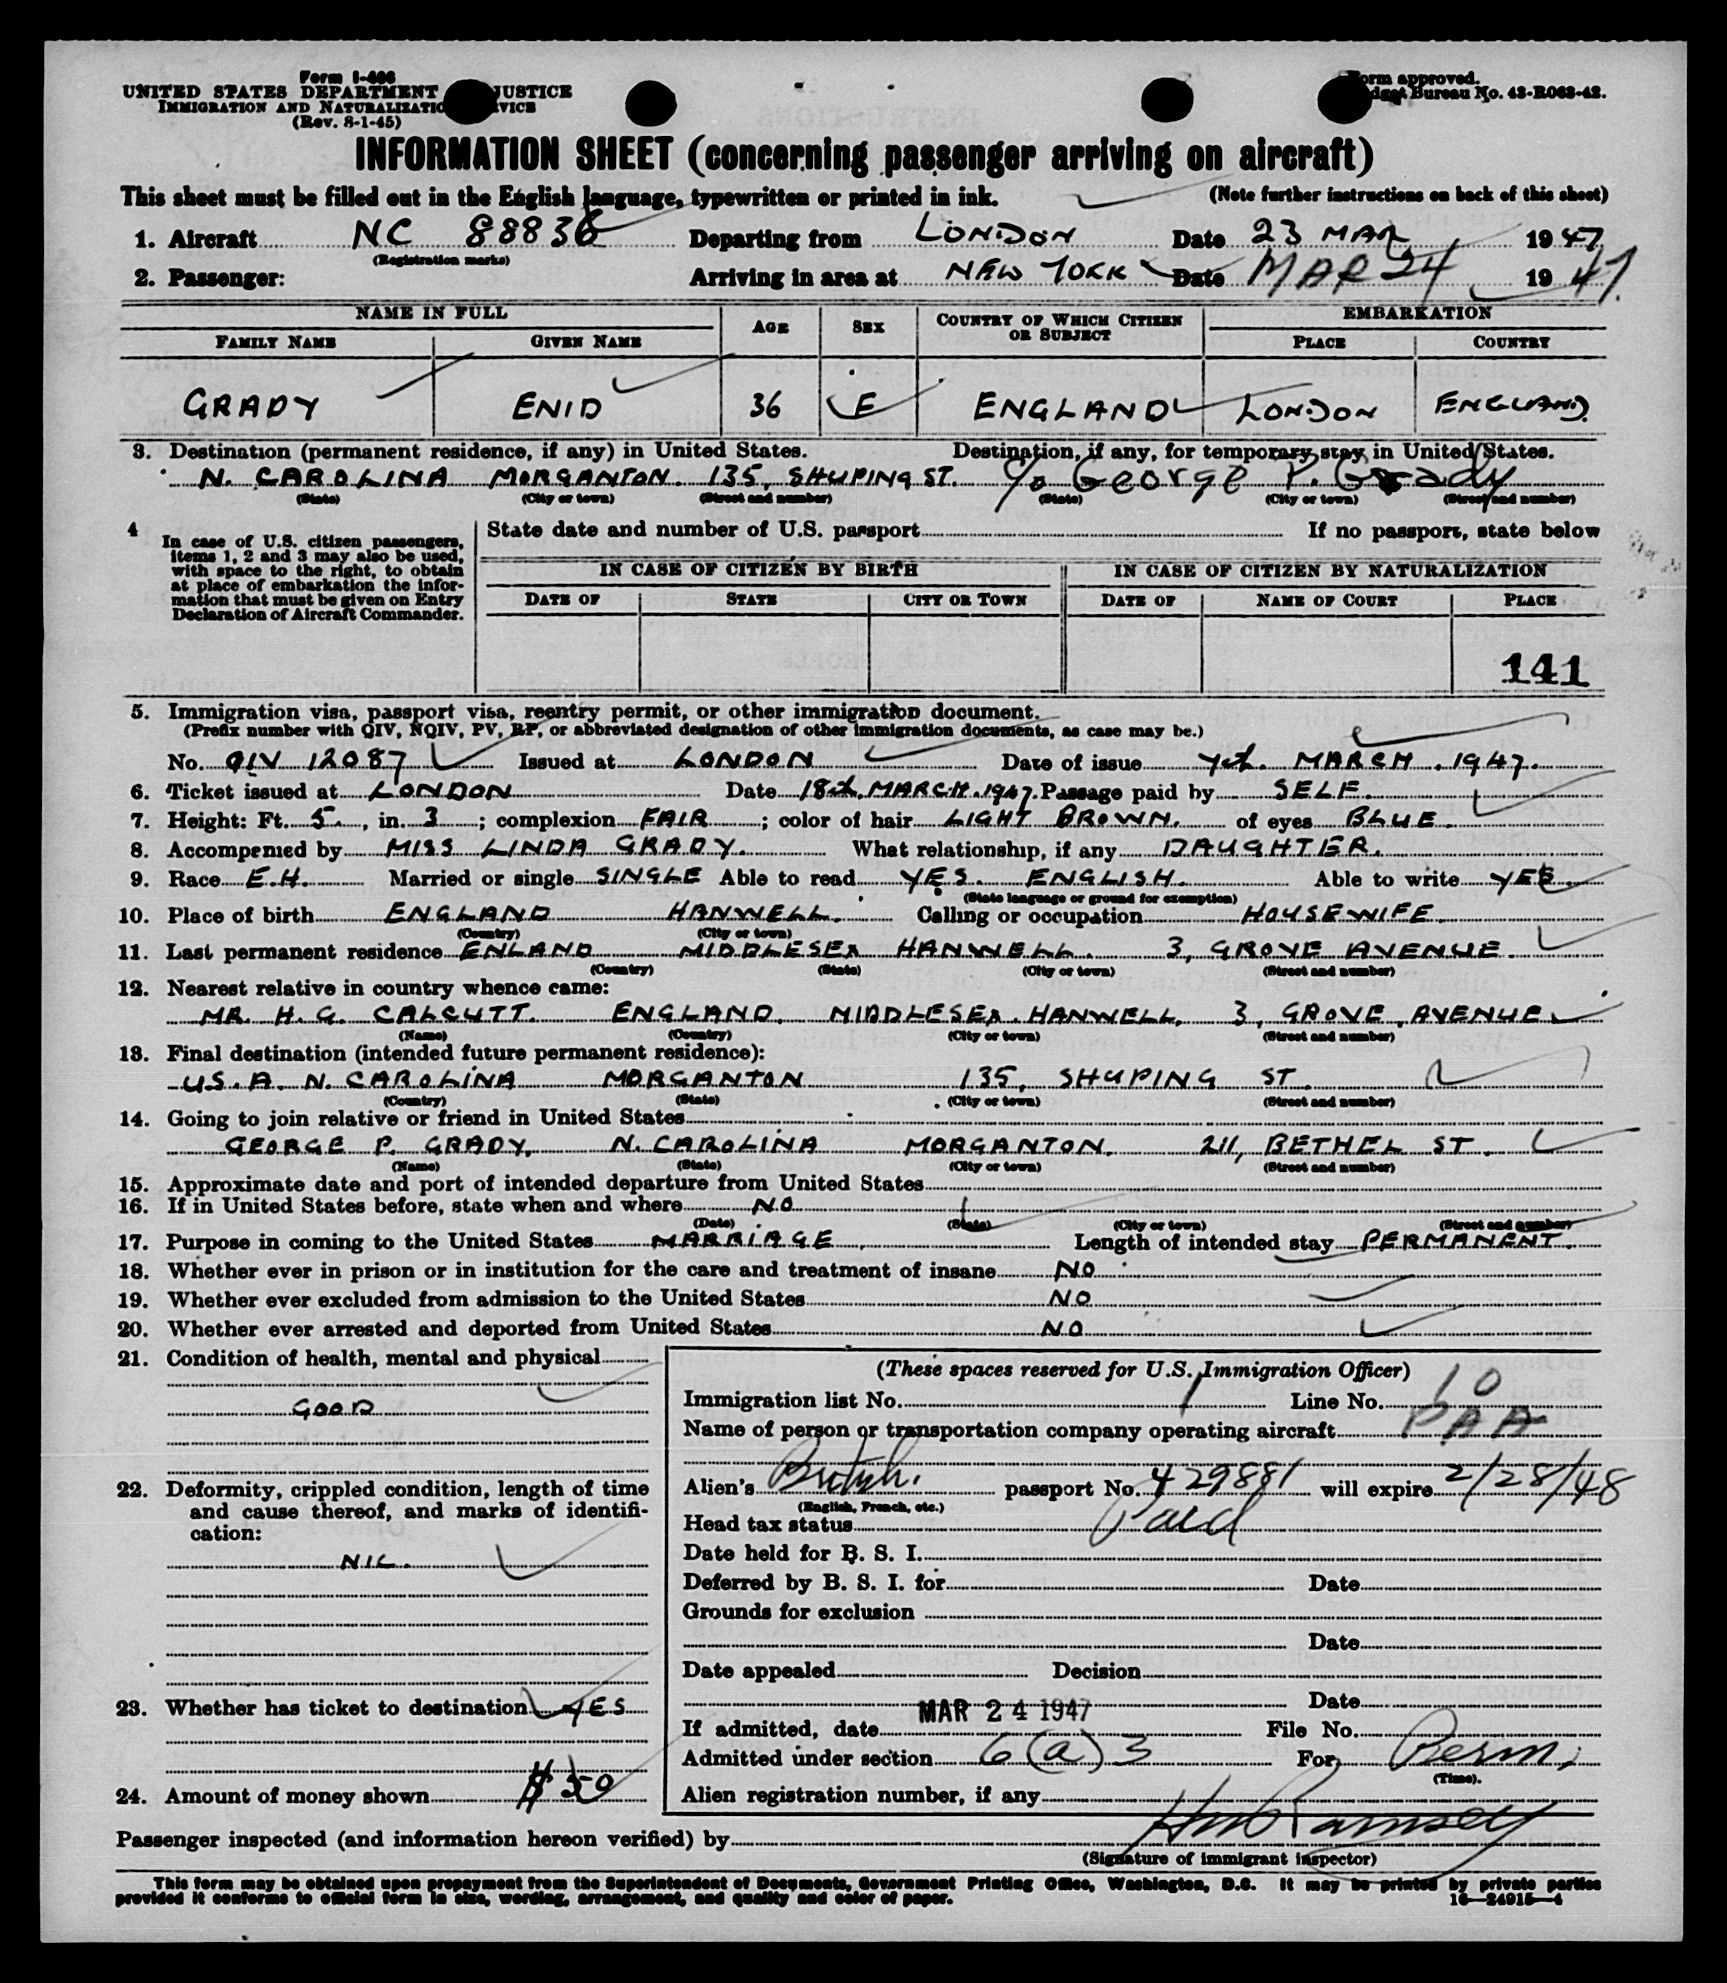 Form I-466
UNITED STATES DEPARTMENT JUSTICE
IMMIGRATION AND NATURALIZATIO VICE
(Rev. 8-1-45)
Form approved.
dget Bureau No. 43-R063-42.
INFORMATION SHEET (concerning passenger arriving on aircraft)
This sheet must be filled out in the English language, typewritten or printed in ink.
(Note further instructions on back of this sheet)
1. Aircraft NC 88836 Departing from LONDON Date 23 MAR 1947
(Registration marks)
2. Passenger: Arriving in area at NEW YORK Date MAR 24 1947.
NAME IN FULL AGE SEX COUNTRY OF WHICH CITIZEN OR SUBJECT EMBARKATION
FAMILY NAME GIVEN NAME PLACE COUNTRY
GRADY ENID 36 F ENGLAND LONDON ENGLAND.
3. Destination (permanent residence, if any) in United States. Destination, if any, for temporary stay in United States.
N. CAROLINA MORGANTON. 135, SHUPING ST. c/o George P. Grady
(State) (City or town) (Street and number) (State) (City or town) (Street and number)
4 In case of U.S. citizen passengers, items 1, 2 and 3 may also be used, with space to the right, to obtain at place of embarkation the information that must be given on Entry Declaration of Aircraft Commander.
State date and number of U.S. passport If no passport, state below
IN CASE OF CITIZEN BY BIRTH IN CASE OF CITIZEN BY NATURALIZATION
DATE OF STATE CITY OR TOWN DATE OF NAME OF COURT PLACE
141
5. Immigration visa, passport visa, reentry permit, or other immigration document.
(Prefix number with QIV, NQIV, PV, RP, or abbreviated designation of other immigration documents, as case may be.)
No. QIV 12087 Issued at LONDON Date of issue 4th. MARCH. 1947.
6. Ticket issued at LONDON Date 18th. MARCH. 1947. Passage paid by SELF.
7. Height: Ft. 5., in. 3; complexion FAIR; color of hair LIGHT BROWN. of eyes BLUE.
8. Accompanied by MISS LINDA GRADY. What relationship, if any DAUGHTER.
9. Race E.H. Married or single SINGLE Able to read YES. ENGLISH. Able to write YES.
(State language or ground for exemption)
10. Place of birth ENGLAND HANWELL. Calling or occupation HOUSEWIFE.
(Country) (City or town)
11. Last permanent residence ENLAND MIDDLESEX HANWELL. 3, GROVE AVENUE.
(Country) (State) (City or town) (Street and number)
12. Nearest relative in country whence came:
MR. H. G. CALCUTT. ENGLAND. MIDDLESEX. HANWELL. 3, GROVE AVENUE
(Name) (Country) (City or town) (Street and number)
13. Final destination (intended future permanent residence):
U.S. A. N. CAROLINA MORGANTON 135, SHUPING ST.
(Country) (State) (City or town) (Street and number)
14. Going to join relative or friend in United States
GEORGE P. GRADY, N. CAROLINA MORGANTON. 211, BETHEL ST.
(Name) (State) (City or town) (Street and number)
15. Approximate date and port of intended departure from United States
16. If in United States before, state when and where NO
(Date) (State) (City or town) (Street and number)
17. Purpose in coming to the United States MARRIAGE Length of intended stay PERMANENT.
18. Whether ever in prison or in institution for the care and treatment of insane NO
19. Whether ever excluded from admission to the United States NO
20. Whether ever arrested and deported from United States NO
21. Condition of health, mental and physical
GOOD
22. Deformity, crippled condition, length of time
and cause thereof, and marks of identifi-
cation:
NIL.
23. Whether has ticket to destination YES
24. Amount of money shown $50
(These spaces reserved for U.S. Immigration Officer)
Immigration list No. 1 Line No. 10
Name of person or transportation company operating aircraft PAA
Alien's British. passport No. 429881 will expire 2/28/48
(English, French, etc.)
Head tax status Paid
Date held for B. S. I.
Deferred by B. S. I. for Date
Grounds for exclusion
Date
Date appealed Decision
Date
If admitted, date MAR 24 1947 File No.
Admitted under section 6(a)3 For Perm.
(Time).
Alien registration number, if any
Passenger inspected (and information hereon verified) by Ramsey
(Signature of immigrant inspector)
This form may be obtained upon prepayment from the Superintendent of Documents, Government Printing Office, Washington, D.C. It may be printed by private parties
provided it conforms to official form in size, wording, arrangement, and quality and color of paper. 16—24915—4